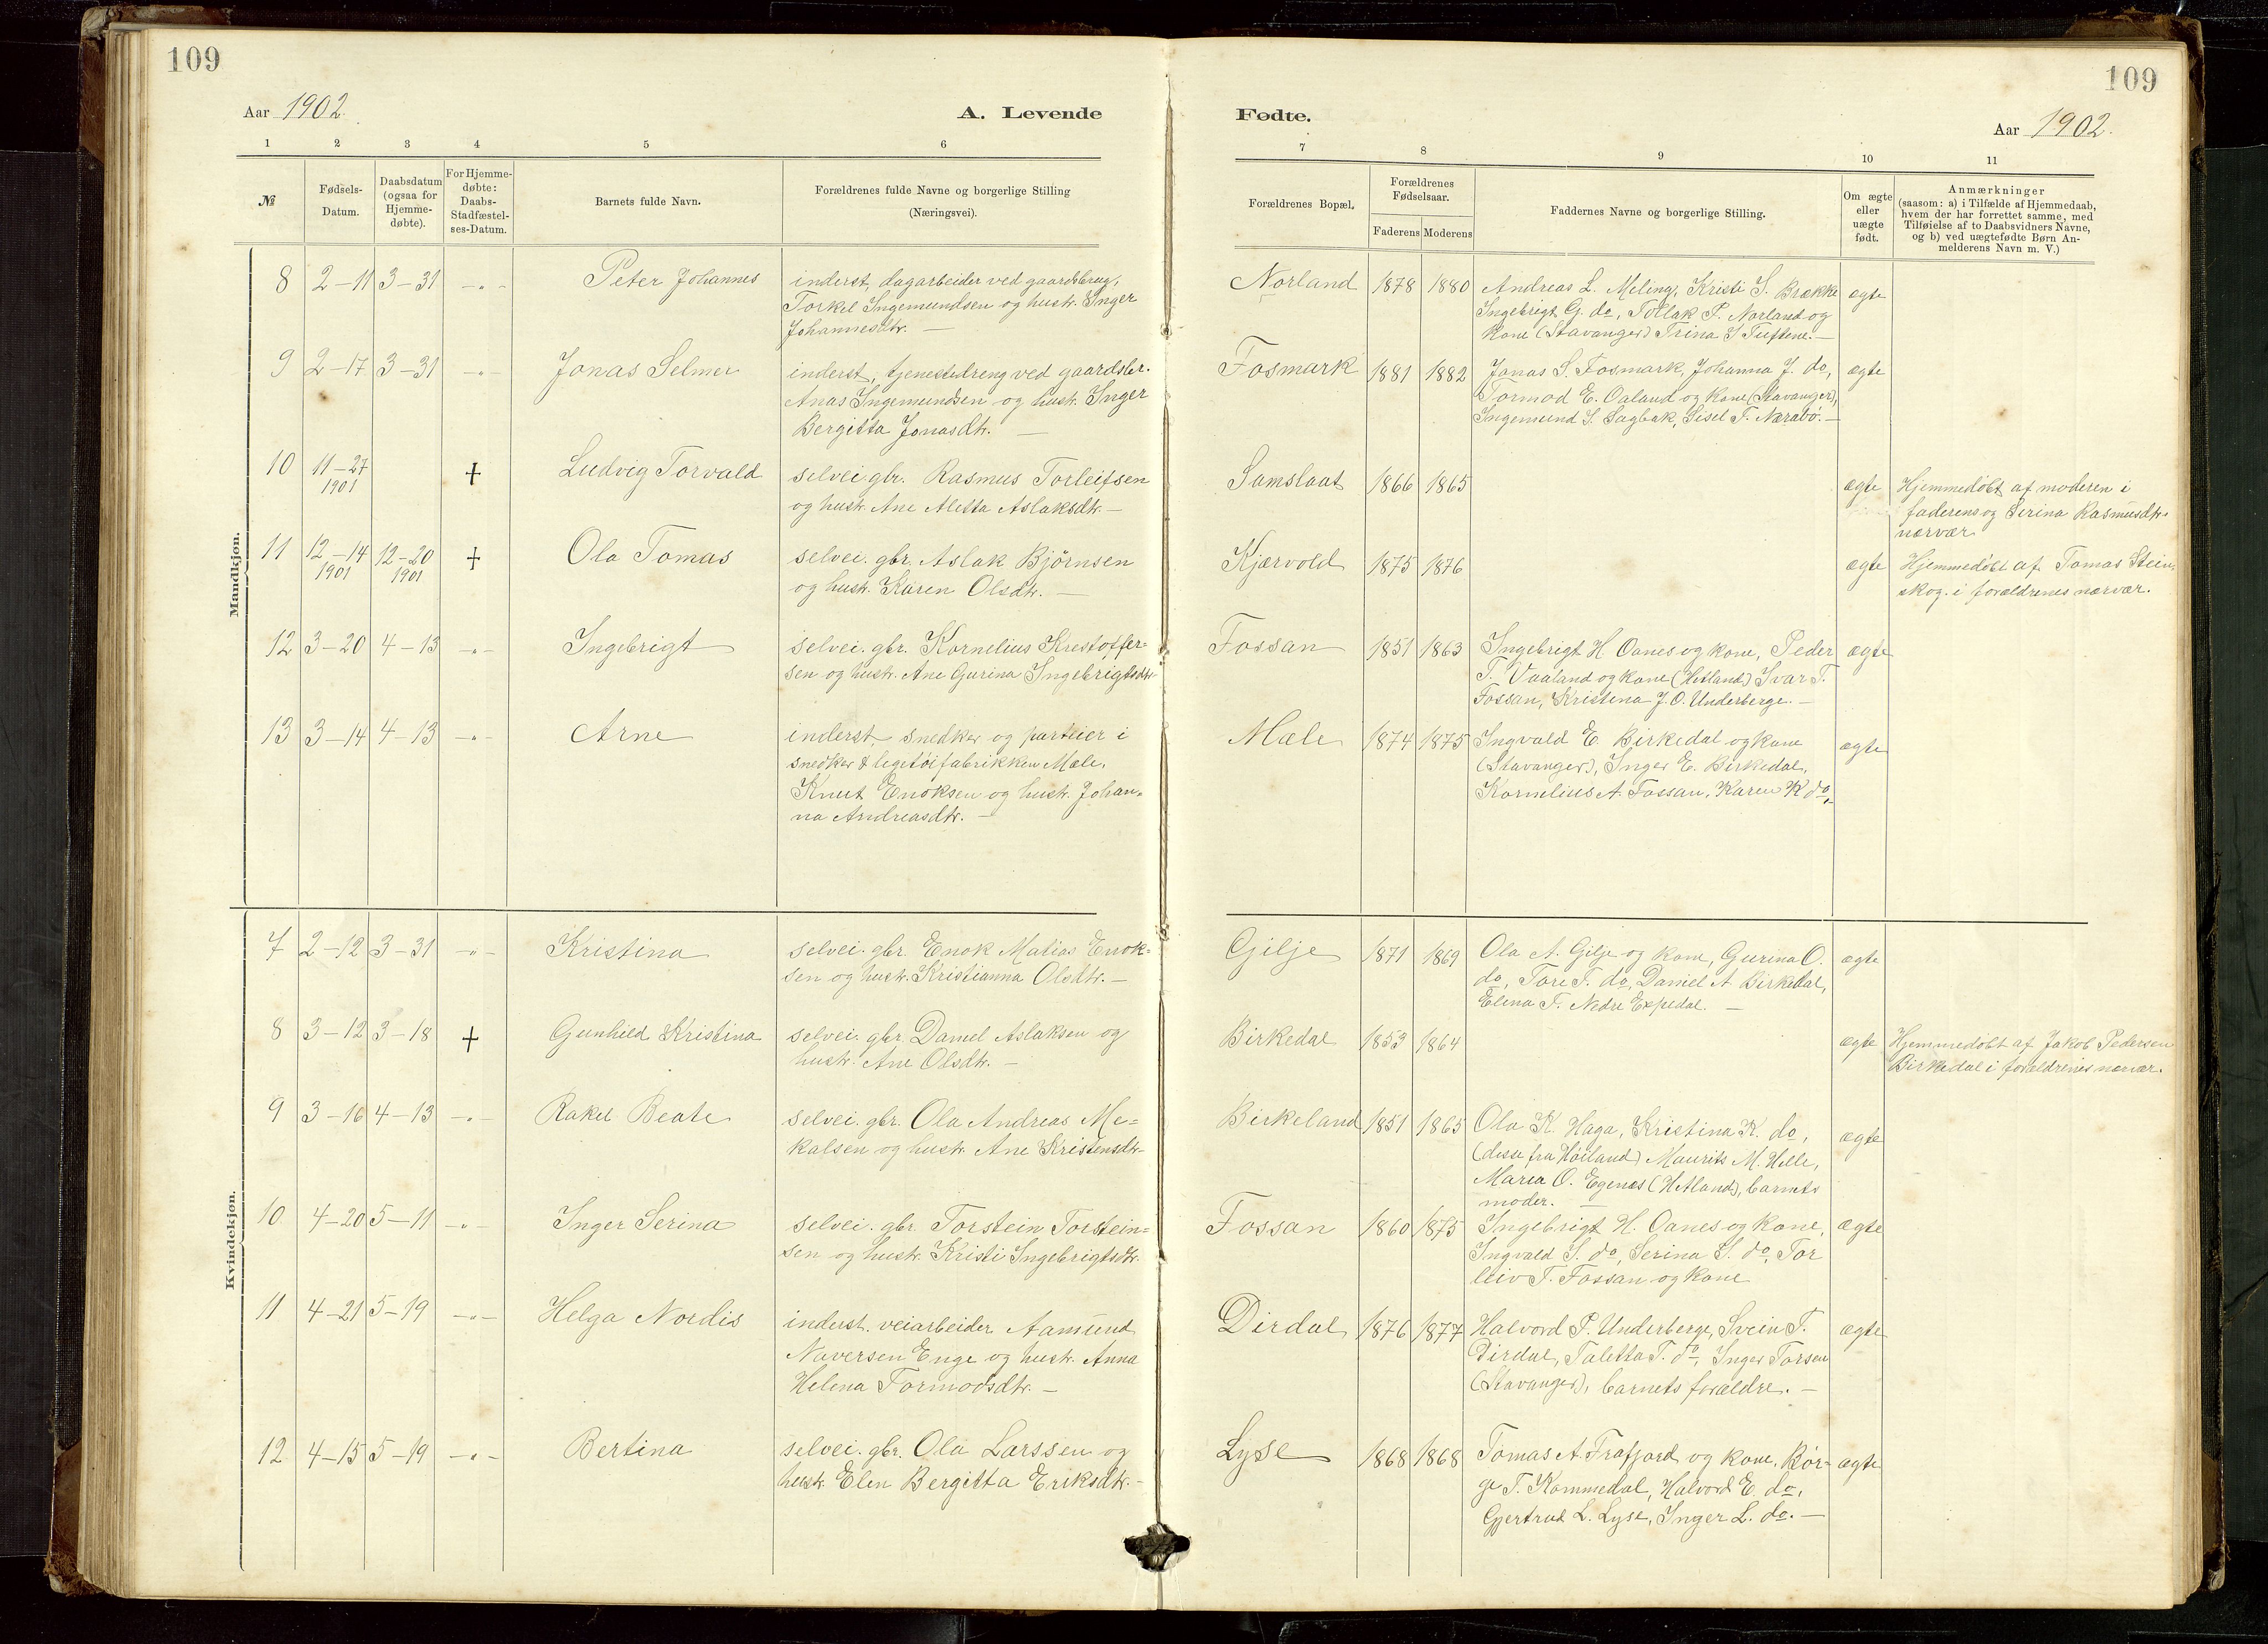 109
109
Aar 1902.
A. Levende
Fødte.
Aar 1902.
1 2 3 4 5 6 7 8 9 10 11
№
Fødsels-Datum.
Daabsdatum (ogsaa for Hjemme-døbte).
For Hjemme-døbte: Daabs-Stadfæstel-ses-Datum.
Barnets fulde Navn.
Forældrenes fulde Navne og borgerlige Stilling
(Næringsvei).
Forældrenes Bopæl.
Forældrenes Fødselsaar.
Faderens Moderens
Faddernes Navne og borgerlige Stilling.
Om ægte eller uægte født.
Anmærkninger
(saasom: a) i Tilfælde af Hjemmedaab,
hvem der har forrettet samme, med
Tilføielse af to Daabsvidners Navne,
og b) ved uægtefødte Børn An-
melderens Navn m. V.)
Mandkjøn.
8 2-11 3-31 -"- Peter Johannes
inderst, dagarbeider ved gaardsbrug,
Torkel Ingemundsen og hustr. Inger
Johannesdtr. —
Norland 1878 1880
Andreas L. Meling, Kristi S. Brække
Ingebrigt G. do, Tollak P. Norland og
Kone (Stavanger) Trina S Tuftene. —
ægte
9 2-17 3-31 -"- Jonas Selmer
inderst, tjenestedreng ved gaardsbr.
Anas Ingemundsen og hustr. Inger
Bergitta Jonasdtr. —
Fosmark 1881 1882
Jonas S. Fosmark, Johanna J. do,
Tormod E. Oaland og Kone (Stavanger),
Ingemund S. Sagbak, Sisel T. Nærabø. —
ægte
10 11-27 1901 + Ludvig Torvald
selvei. gbr. Rasmus Torleifsen
og hustr. Ane Aletta Aslaksdtr. —
Samslaat 1866 1865
ægte
Hjemmedøbt af moderen i
faderens og Serina Rasmusdtr.
nærvær
11 12-14 1901 12-20 1901 + Ola Tomas
selvei. gbr. Aslak Bjørnsen
og hustr. Karen Olsdtr. —
Kjærvold 1875 1876
ægte
Hjemmedøbt af Tomas Stein-
skog i forældrenes nærvær.
12 3-20 4-13 -"- Ingebrigt
selvei. gbr. Kornelius Krestoffer=
sen og hustr. Ane Gurina Ingebrigtsdtr
Fossan 1851 1863
Ingebrigt H Oanes og kone, Peder
T. Vaaland og kone (Hetland) Ivar T.
Fossan, Kristena J. O. Underberge. —
ægte
13 3-14 4-13 -"- Arne
inderst, snedker og parteier i
snedker & legetøifabrikken Mæle.
Knut Enoksen og hustr. Johan-
na Andreasdtr. —
Mæle 1874 1875
Ingvald E. Birkedal og kone
(Stavanger), Inger E. Birkedal,
Kornelius A. Fossan, Karen K do.
ægte
Kvindekjøn.
7 2-12 3-31 -"- Kristina
selvei. gbr. Enok Matias Enok=
sen og hustr. Kristianna Olsdtr. —
Gilje 1871 1869
Ola A. Gilje og kone, Gurina O.
do, Tore T. do, Daniel A Birkedal,
Elena T. Nedre Expedal. —
ægte
8 3-12 3-18 + Gunhild Kristina
selvei. gbr. Daniel Aslaksen og
hustr. Ane Olsdtr. —
Birkedal 1853 1864
ægte
Hjemmedøbt af Jakob Pedersen
Birkedal i forældrenes nærvær.
9 3-16 4-13 -"- Rakel Beate
selvei. gbr. Ola Andreas Me=
kalsen og hustr. Ane Kristensdtr
Birkeland 1851 1865
Ola K. Haga, Kristina K. do,
(disse fra Høiland) Maurits M. Helle,
Maria O. Egenes (Hetland), barnets
moder. —
ægte
10 4-20 5-11 -"- Inger Serina
selvei. gbr. Torstein Torstein=
sen og hustr. Kristi Ingebrigtsdtr.
Fossan 1860 1875
Ingebrigt H. Oanes og kone,
Ingvald S. do, Serina S. do, Tor
leiv T. Fossan og kone
ægte
11 4-21 5-19 -"- Helga Nordis
inderst. veiarbeider Aamund
Naversen Enge og hustr. Anna
Helena Tormodsdtr. —
Dirdal 1876 1877
Halvord P. Underberge, Svein T.
Dirdal, Taletta T. do, Inger Torsen
(Stavanger), barnets forældre. —
ægte
12 4-15 5-19 -"- Bertina
selvei. gbr. Ola Larssen og
hustr. Elen Bergitta Eriksdtr. -
Lyse 1868 1868
Tomas A. Frafjord og kone, Bør-
ge T. Kommedal, Halvord E. do,
Gjertrud L. Lyse, Inger L. do. —
ægte